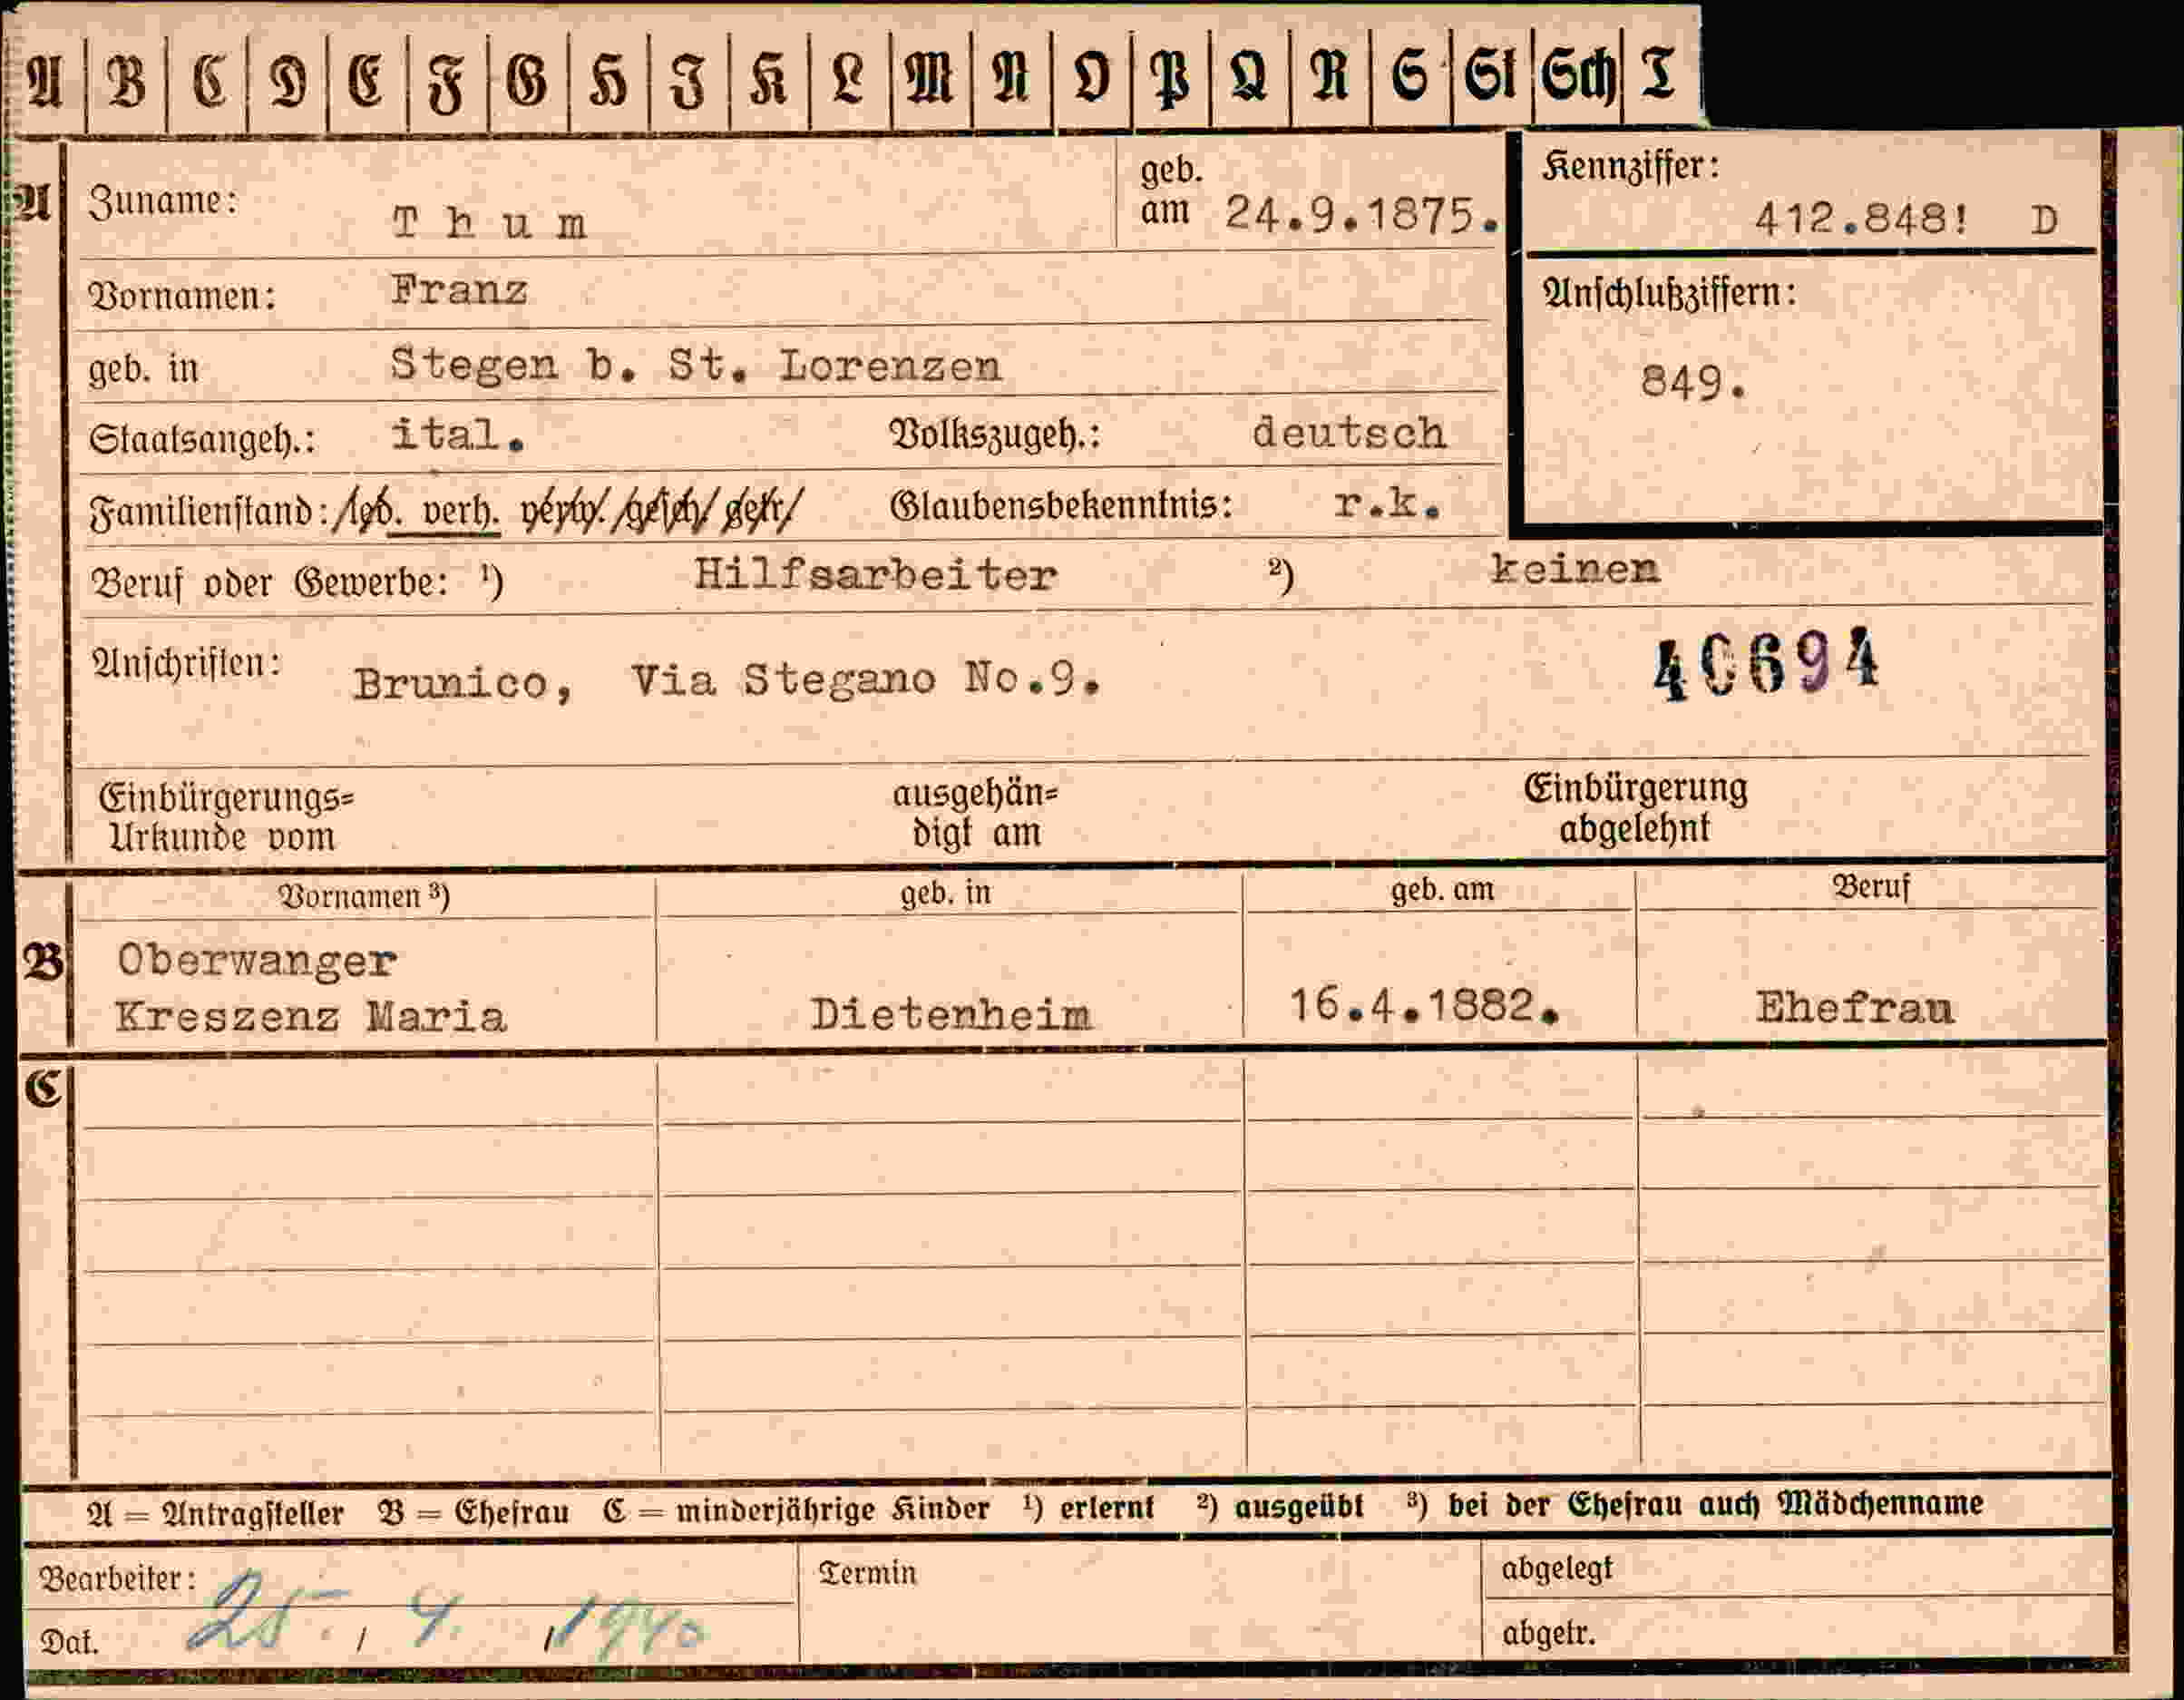 A B C D E F G H J K L M N O P Q R S St Sch T
A Zuname: Thum geb. am 24.9.1875. Kennziffer: 412.848! D
Vornamen: Franz Anschlußziffern:
geb. in Stegen b. St. Lorenzen 849.
Staatsangeh.: ital. Volkszugeh.: deutsch
Familienstand: led. verh. verw. gesch. getr. Glaubensbekenntnis: r.k.
Beruf oder Gewerbe: ¹) Hilfsarbeiter ²) keinen
Anschriften: Brunico, Via Stegano No.9. 40694
Einbürgerungs= ausgehän= Einbürgerung
Urkunde vom digt am abgelehnt
Vornamen ³) geb. in geb. am Beruf
B Oberwanger
Kreszenz Maria Dietenheim 16.4.1882. Ehefrau
C
A = Antragsteller B = Ehefrau C = minderjährige Kinder ¹) erlernt ²) ausgeübt ³) bei der Ehefrau auch Mädchenname
Bearbeiter: Termin abgelegt
Dat. 25. / 4. / 1940 abgetr.